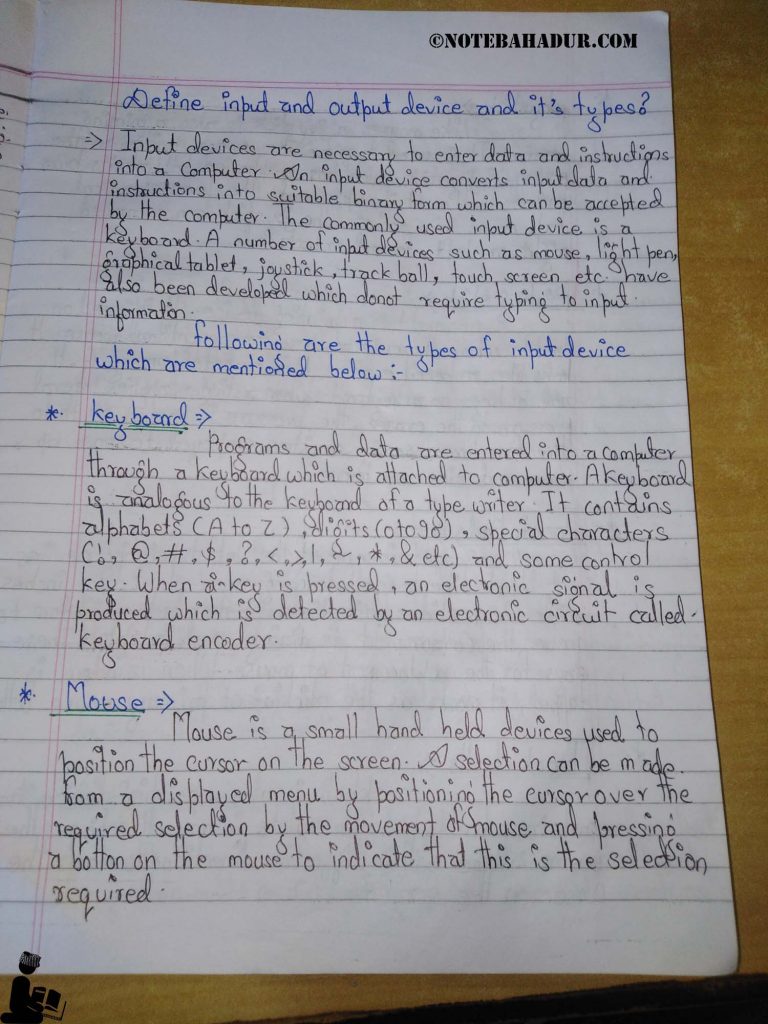 ©NOTEBAHADUR.COM
Define input and output device and it's types?
⇒ Input devices are necessary to enter data and instructions
into a Computer. An input device converts input data and
instructions into suitable binary form which can be accepted
by the computer. The commonly used input device is a
keyboard. A number of input devices such as mouse, light pen,
graphical tablet, joystick, track ball, touch screen etc. have
also been developed which donot require typing to input
information.
following are the types of input device
which are mentioned below :-
*. keyboard ⇒
Programs and data are entered into a computer
through a keyboard which is attached to computer. A keyboard
is analogous to the keyboard of a type writer. It contains
alphabets (A to Z), digits (0 to 98), special characters
(!, @, #, $, ?, <, >, |, ~, *, & etc) and some control
key. When a key is pressed, an electronic signal is
produced which is detected by an electronic circuit called.
keyboard encoder.
*. Mouse ⇒
Mouse is a small hand held devices used to
position the cursor on the screen. A selection can be made.
from a displayed menu by positioning the cursor over the
required selection by the movement of mouse and pressing
a botton on the mouse to indicate that this is the selection
required.